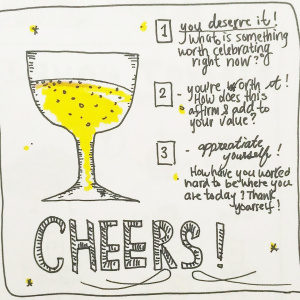 1 you deserve it!
What is something
worth celebrating
right now?
2 - you're worth it!
How does this
affirm & add to
your value?
3 - appreatiate
yourself!
How have you worked
hard to be where you
are today? Thank
yourself!
CHEERS!